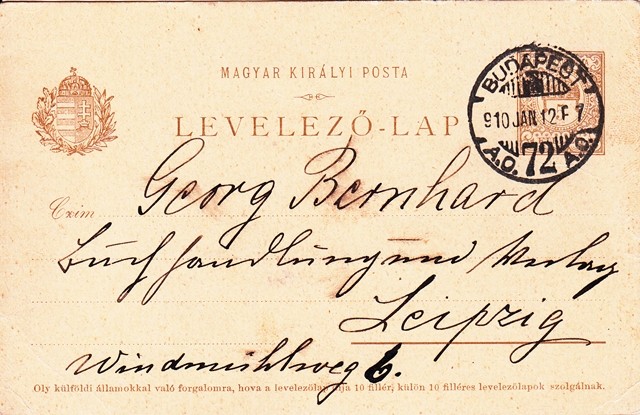 MAGYAR KIRÁLYI POSTA
LEVELEZŐ-LAP
BUDAPEST
910 JAN 12 F 7
A.O. 72 A.O.
Czim
Georg Bernhard
Buchhandlung und Verlag
Leipzig
Windmühlweg 6.
Oly külföldi államokkal való forgalomra, hova a levelezőlap díja 10 fillér, külön 10 filléres levelezőlapok szolgálnak.